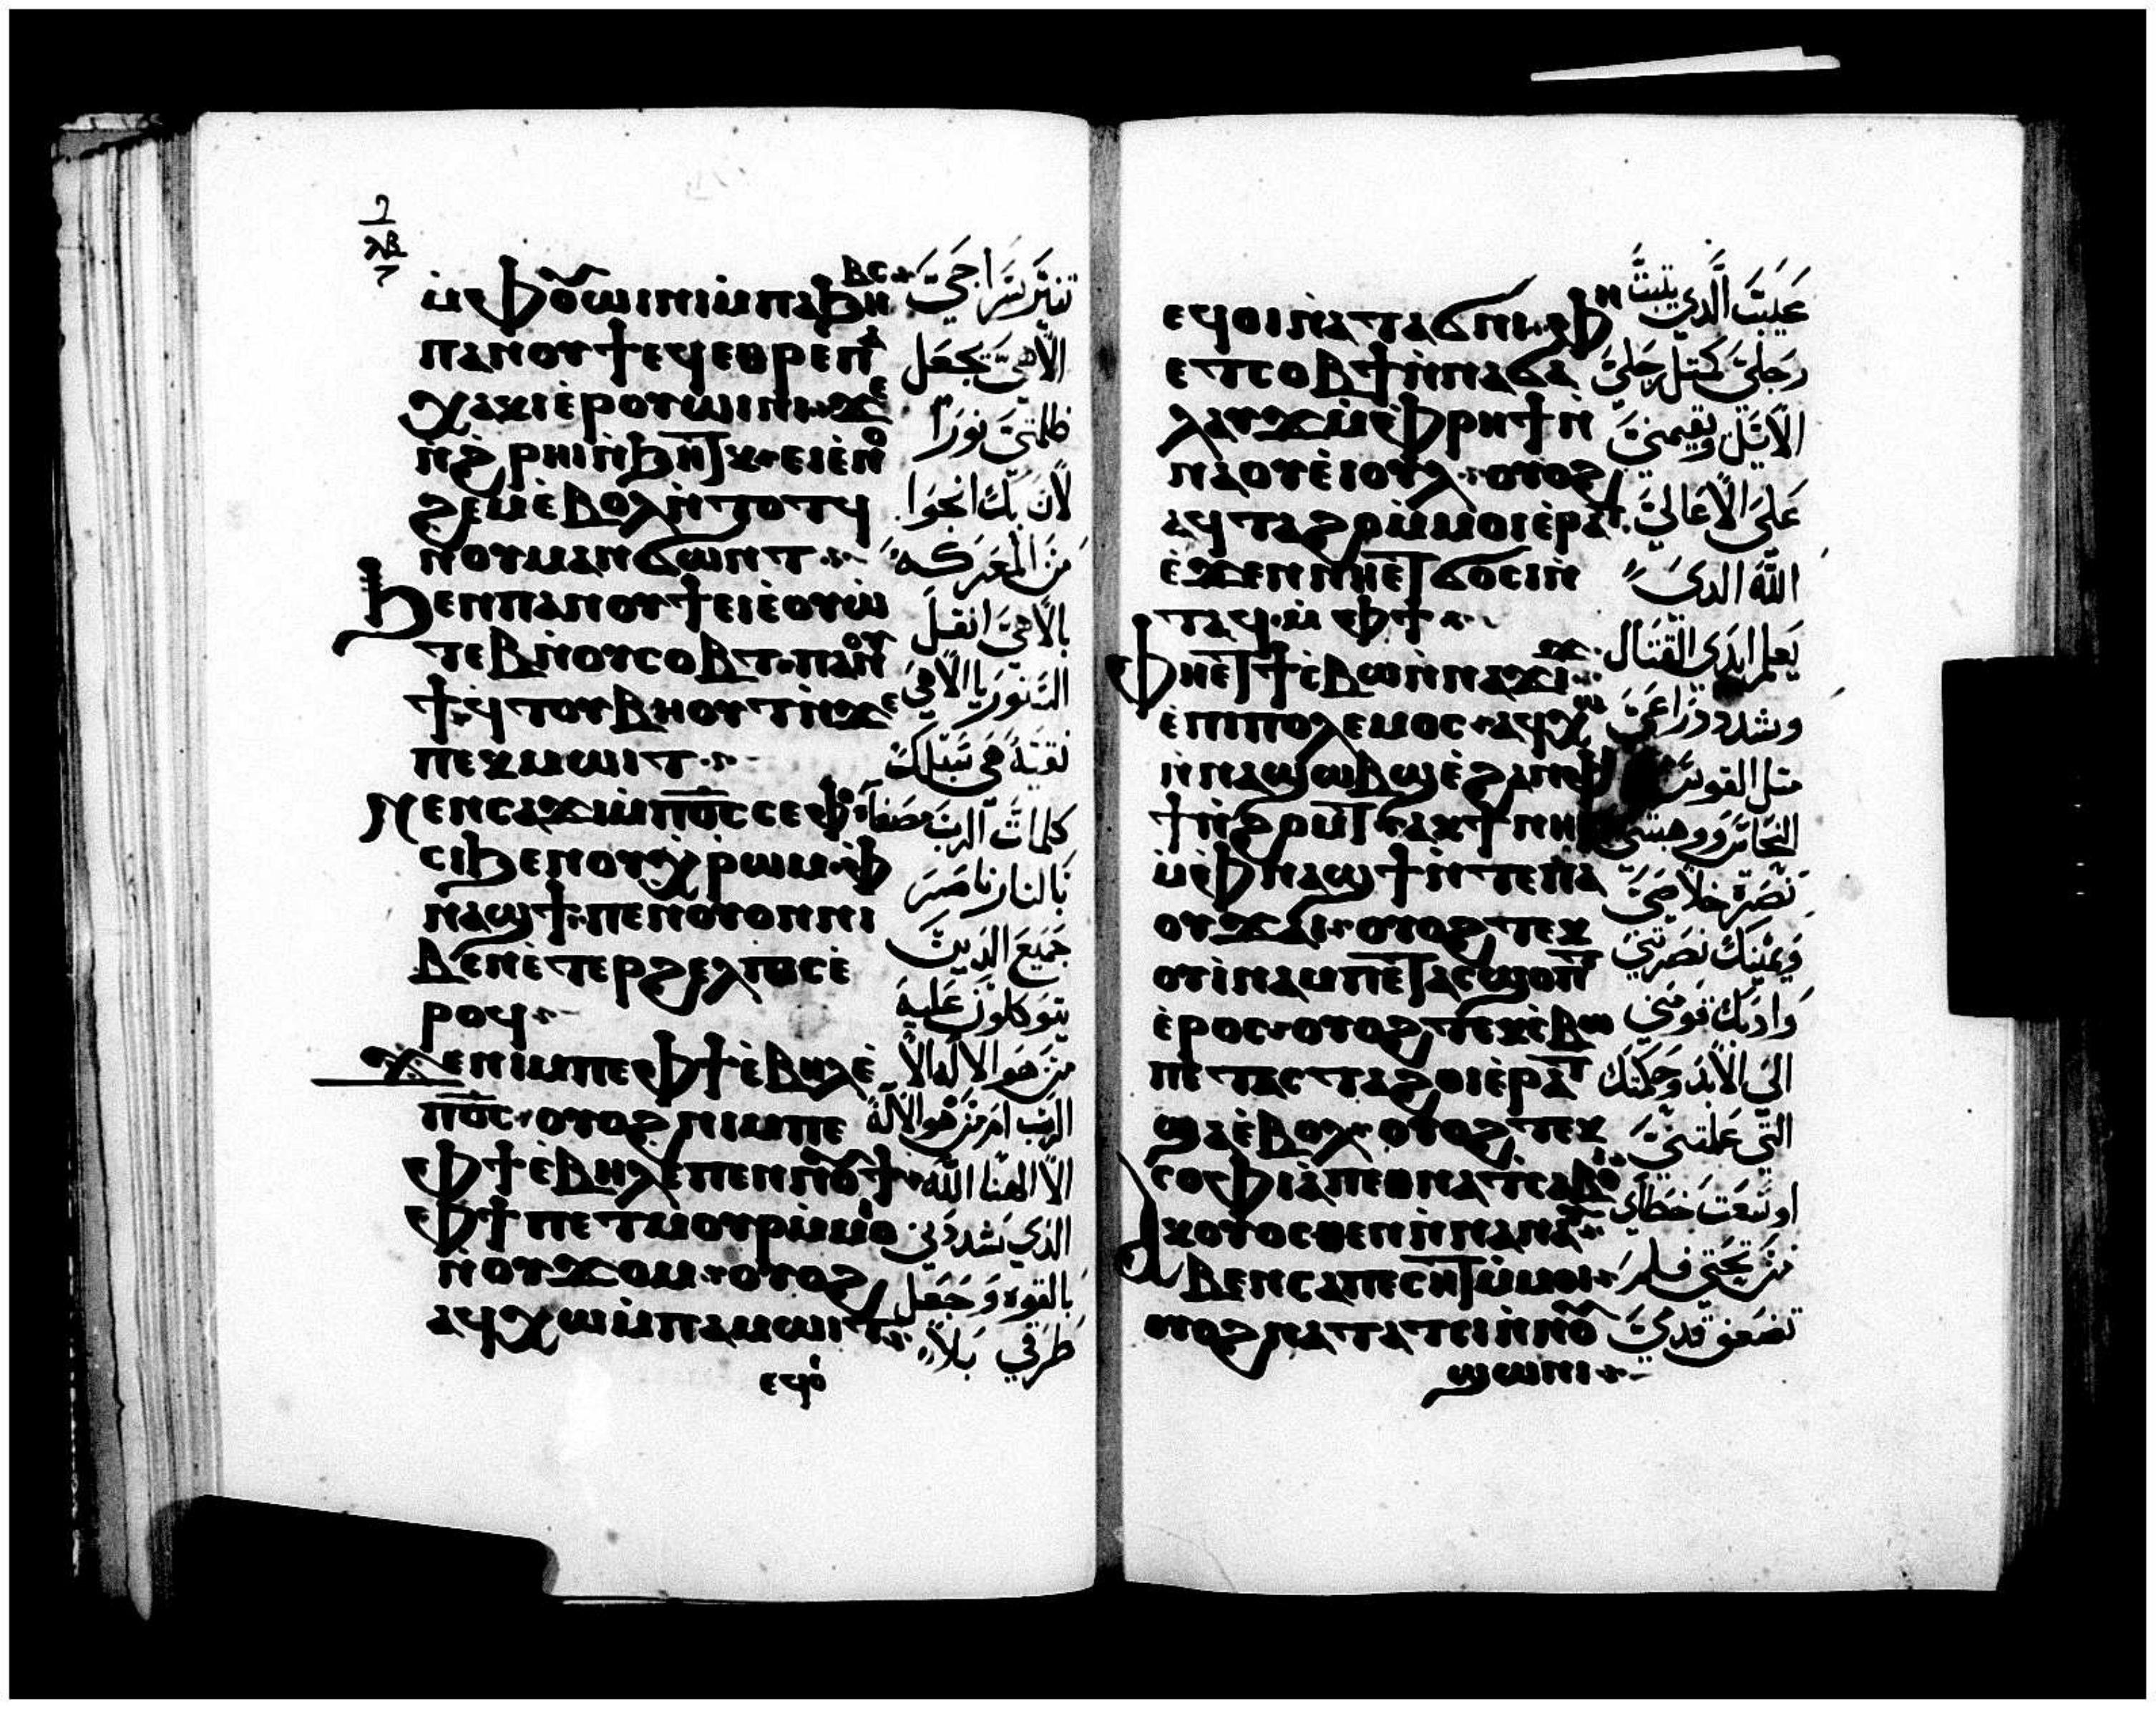 ⲗⲃ
ⲙ̀ⲫⲟⲩⲱⲓⲛⲓ ⲙ̀ⲡⲁϧⲏⲃⲥ
ⲡⲁⲛⲟⲩϯ ⲉϥⲉⲑⲣⲉ ⲡⲁ
ⲭⲁⲕⲓ ⲉ̀ⲣⲟⲩⲱⲓⲛⲓ ϫⲉ
ⲛ̀ϩ̀ⲣⲏⲓ ⲛ̀ϧⲏⲧⲕ ⲉⲓⲉ̀ⲛⲟ
ϩⲉⲙ ⲉ̀ⲃⲟⲗ ⲛ̀ⲧⲟⲧϥ
ⲛⲟⲩⲙⲁⲛϭⲱⲛⲧ
ϧⲉⲛ ⲡⲁⲛⲟⲩϯ ⲉⲓⲉ̀ⲟⲩⲱ
ⲧⲉⲃ ⲛ̀ⲟⲩⲥⲟⲃⲧ ⲡⲁⲛⲟⲩ
ϯ ϥ̀ⲧⲟⲩⲃⲏⲟⲩⲧ ⲛ̀ϫⲉ
ⲡⲉⲕⲙⲱⲓⲧ
ⲛⲉⲛⲥⲁϫⲓ ⲙ̀ⲡⲟ̅ⲥ̅ ⲥⲉⲫⲟ
ⲥⲓ ϧⲉⲛ ⲟⲩⲭ̀ⲣⲱⲙ ⲫ
ⲛⲁϣϯ ⲡⲉ ⲛ̀ⲟⲩⲟⲛ ⲛⲓ
ⲃⲉⲛ ⲉ̀ⲧⲉⲣϩⲉⲗⲡⲓⲥ ⲉ̀
ⲣⲟϥ
ϫⲉ ⲛⲓⲙ ⲡⲉ ⲫϯ ⲉ̀ⲃⲏⲗ ⲉ̀
ⲡⲟ̅ⲥ̅ ⲟⲩⲟϩ ⲛⲓⲙ ⲡⲉ
ⲫϯ ⲉ̀ⲃⲏⲗ ⲉ̀ⲡⲉⲛⲛⲟⲩϯ
ⲫϯ ⲡⲉⲧⲙⲟⲩⲣ ⲙ̀ⲙⲟ
ⲛ̀ⲟⲩϫⲟⲙ ⲟⲩⲟϩ
ⲁϥⲭⲱ ⲙ̀ⲡⲁⲙⲱⲓⲧ
ⲉϥⲟ̀
تنير سراجي
الاهي تجعل
ظلمتي نورًا
لان بك انجوا
من المعركه
بالاهي انقل
السور يا الاهي
نقيه هي سبلك
كلمات الرب مصفاه
بالنار ناصر
جميع الدين
يتوكلون عليه
من هو الاله الا
الرب ام من هو الاله
الا الهنا الله
الذي شددني
بالقوه وجعل
طرقي بلا
ⲉϥⲟⲓ ⲛ̀ⲁⲧⲁϭⲛⲓ ⲫⲏ
ⲉⲧⲥⲟⲃϯ ⲛ̀ⲛⲁϭⲁ
ⲗⲁⲩϫ ⲙ̀ⲫⲣⲏϯ ⲛ̀
ⲛⲁ ⲟⲩⲉ̀ⲓⲟⲩⲗ ⲟⲩⲟϩ
ⲁϥⲧⲁϩⲟ ⲙ̀ⲙⲟⲓ ⲉ̀ⲣⲁⲧ
ⲉ̀ϫⲉⲛ ⲛⲏⲉⲧϭⲟⲥⲓ ⲛ̀
ⲧⲁϥ ⲙ̀ⲫϯ
ⲫⲏⲉⲧϯⲥⲃⲱ ⲛ̀ⲛⲁϫⲓϫ
ⲉ̀ⲡⲓⲡⲟⲗⲉⲙⲟⲥ ⲁϥⲭⲱ
ⲛ̀ⲛⲁϣⲱⲃϣ ⲉ̀ϩⲁⲛⲫⲓ
ϯ ⲛ̀ϩⲟⲙⲧ ⲁⲕϯ ⲛⲏⲓ
ⲙ̀ⲫⲛⲁϣϯ ⲛ̀ⲧⲉ ⲡⲁ
ⲟⲩϫⲁⲓ ⲟⲩⲟϩ ⲧⲉⲕ
ⲟⲩⲓ̀ⲛⲁⲙ ⲡⲉⲧⲁⲥϣⲟⲡⲧ
ⲉ̀ⲣⲟⲥ ⲟⲩⲟϩ ⲧⲉⲕⲥ̀ⲃⲱ
ⲡⲉⲧⲁⲥⲧⲁϩⲟⲓ ⲉ̀ⲣⲁⲧ
ϣⲁ ⲉ̀ⲃⲟⲗ ⲟⲩⲟϩ ⲧⲉⲕ
ⲥⲟⲫⲓⲁ̀ ⲡⲉⲑⲛⲁⲧⲥⲁⲃⲟⲓ
ⲁⲕⲟⲩⲟⲥⲑⲉⲛ ⲛ̀ⲛⲁⲛⲁ
ⲃⲉⲛ ⲥⲁⲡⲉⲥⲏⲧ ⲙ̀ⲙⲟⲓ
ⲟⲩⲟϩ ⲛⲁⲧⲁⲧⲥⲓ ⲙ̀ⲡⲟⲩ
ϣⲱⲛⲓ
عيب الذي يثبت
رجلي كمثل رجلي
الايل ويقيمني
علي الاعالي
الله الدي
يعلم ايدي القتال
وشدد دراعي
مثل القوس
النحاس ووهبتني
نصرة خلاصي
ويمينك نصرتني
وادبك قومني
الي الابد وحكمتك
التي علمتني
اوسعت خطاي
من تحتي فلم
تضعف قدمي